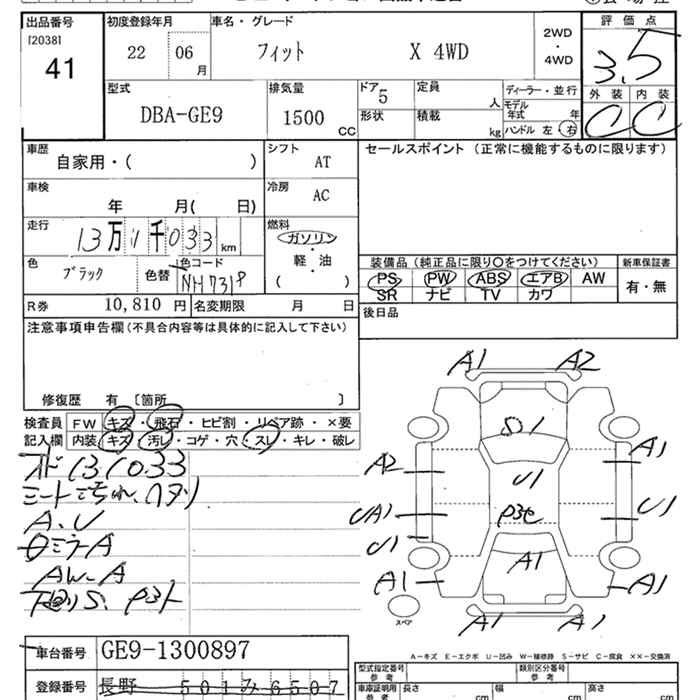 出品番号 初度登録年月 車名・グレード 評価点
[2038]
41
22 06 月 フィット X 4WD
2WD
・
4WD
3.5
外装 内装
C C
型式 排気量 ドア 定員 人 ディーラー・並行
DBA-GE9 1500 CC 5
形状 積載 kg
モデル年式 年
ハンドル 左・右
車歴 シフト セールスポイント (正常に機能するものに限ります)
自家用・( ) AT
車検 冷房
年 月( 日) AC
走行 燃料
13万1千033 km ガソリン
軽・油
( )
色 色替 色コード
ブラック NH731P
装備品 (純正品に限り○をつけてください) 新車保証書
PS PW ABS エアB AW 有・無
SR ナビ TV カワ
R券 10,810 円 名変期限 月 日
後日品
注意事項申告欄 (不具合内容等は具体的に記入して下さい)
修復歴 有 [箇所 ]
検査員 FW キズ・飛石・ヒビ割・リペア跡・×要
記入欄 内装 キズ・汚レ・コゲ・穴・スレ・キレ・破レ
A.U
AW-A
A1 A2
S1
A2 U1 A1
UA1 U1
U1 A1
A1 A1
スペア
A1 A1
A-キズ E-エクボ U-凹み W-補修跡 S-サビ C-腐食 ××-交換済
車台番号 GE9-1300897
登録番号 長野 501 み 6507
型式指定番号 参考 類別区分番号 参考
車庫証明用 参考 長さ cm 幅 cm 高さ cm